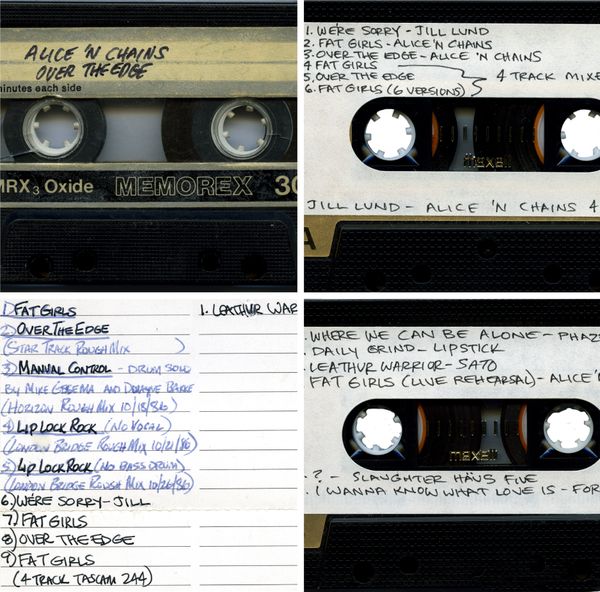 ALICE 'N CHAINS
OVER THE EDGE
minutes each side
MRX3 Oxide MEMOREX 30
1. WE'RE SORRY - JILL LUND
2. FAT GIRLS - ALICE 'N CHAINS
3. OVER THE EDGE - ALICE 'N CHAINS
4 FAT GIRLS
5. OVER THE EDGE 4 TRACK MIXE
6. FAT GIRLS (6 VERSIONS)
maxell
JILL LUND - ALICE 'N CHAINS 4
A
1) FAT GIRLS
2) OVER THE EDGE
(STAR TRACK ROUGH MIX )
3) MANUAL CONTROL - DRUM SOLO
BY MIKE AND
(HORIZON ROUGH MIX 10/13/86)
4) LIP LOCK ROCK (NO VOCAL)
(LONDON BRIDGE ROUGH MIX 10/21/86)
5) LIP LOCK ROCK (NO BASS DRUM)
(LONDON BRIDGE ROUGH MIX 10/26/86)
6) WE'RE SORRY - JILL
7) FAT GIRLS
8) OVER THE EDGE
9) FAT GIRLS
(4 TRACK TASCAM 244)
1. LEATHUR WAR
. WHERE WE CAN BE ALONE - PHAZ
. DAILY GRIND - LIPSTICK
. LEATHUR WARRIOR - SATO
FAT GIRLS (LIVE REHEARSAL) - ALICE 'N
maxell
. ? - SLAUGHTER HAÜS FIVE
. I WANNA KNOW WHAT LOVE IS - FOR